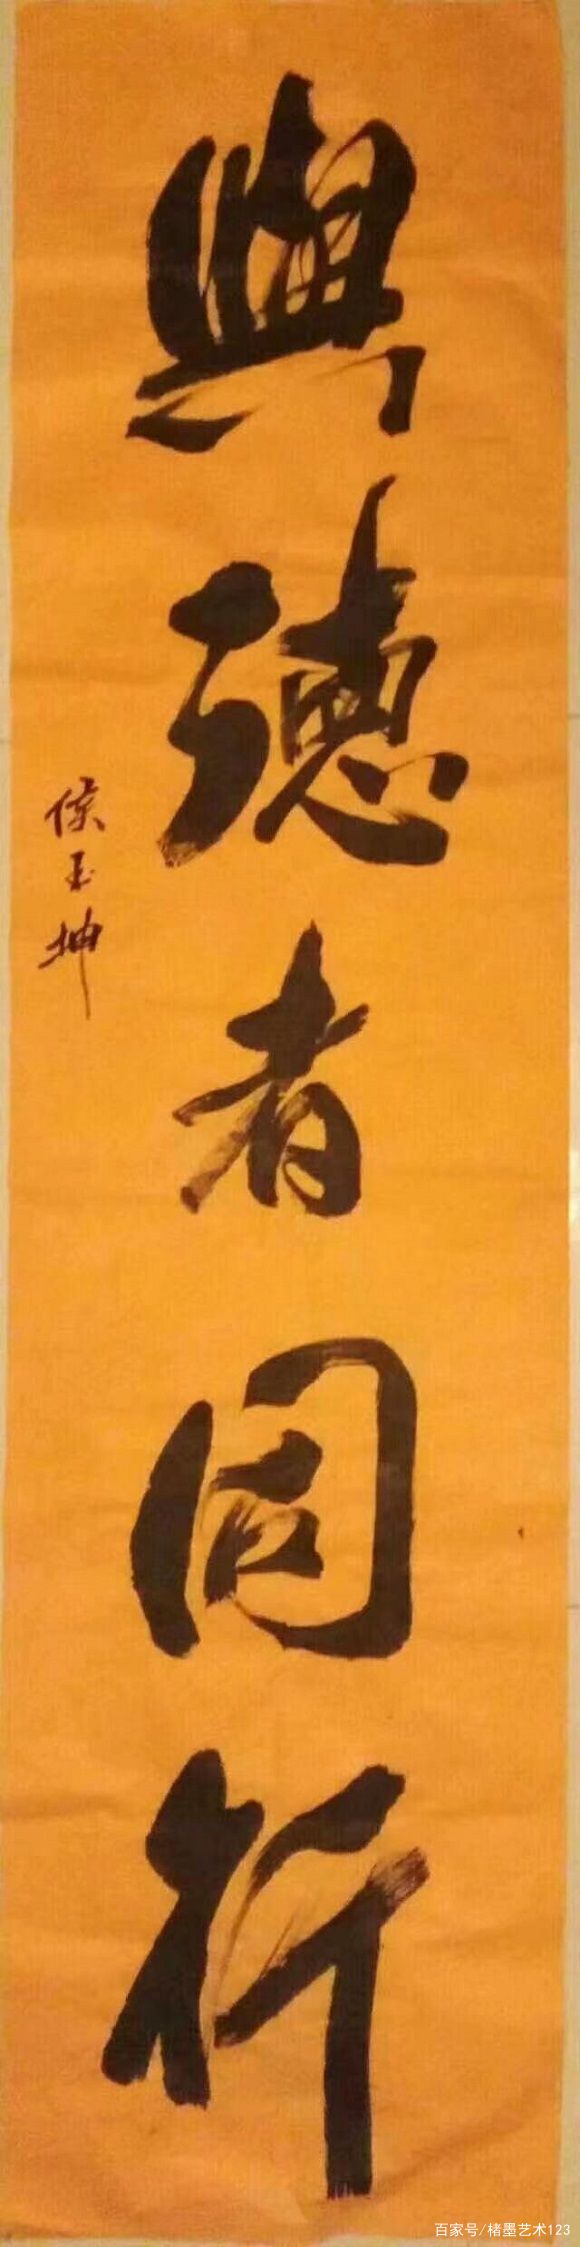 與德者同行
侯玉坤
百家号/楮墨艺术123